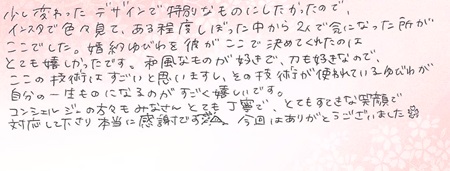 少し変わったデザインで特別なものにしたかったので、
インスタで色々見て、ある程度しぼった中から2人で気になった所が
ここでした。婚約ゆびわを彼がここで決めてくれたのは
とても嬉しかったです。和風なものが好きで、刀も好きなので、
ここの技術はすごいと思いますし、その技術が使われているゆびわが
自分の一生ものになるのがすごく嬉しいです。
コンシェルジュの方々もみなさんとても丁寧で、とてもすてきな笑顔で
対応して下さり本当に感謝です。今回はありがとうございました